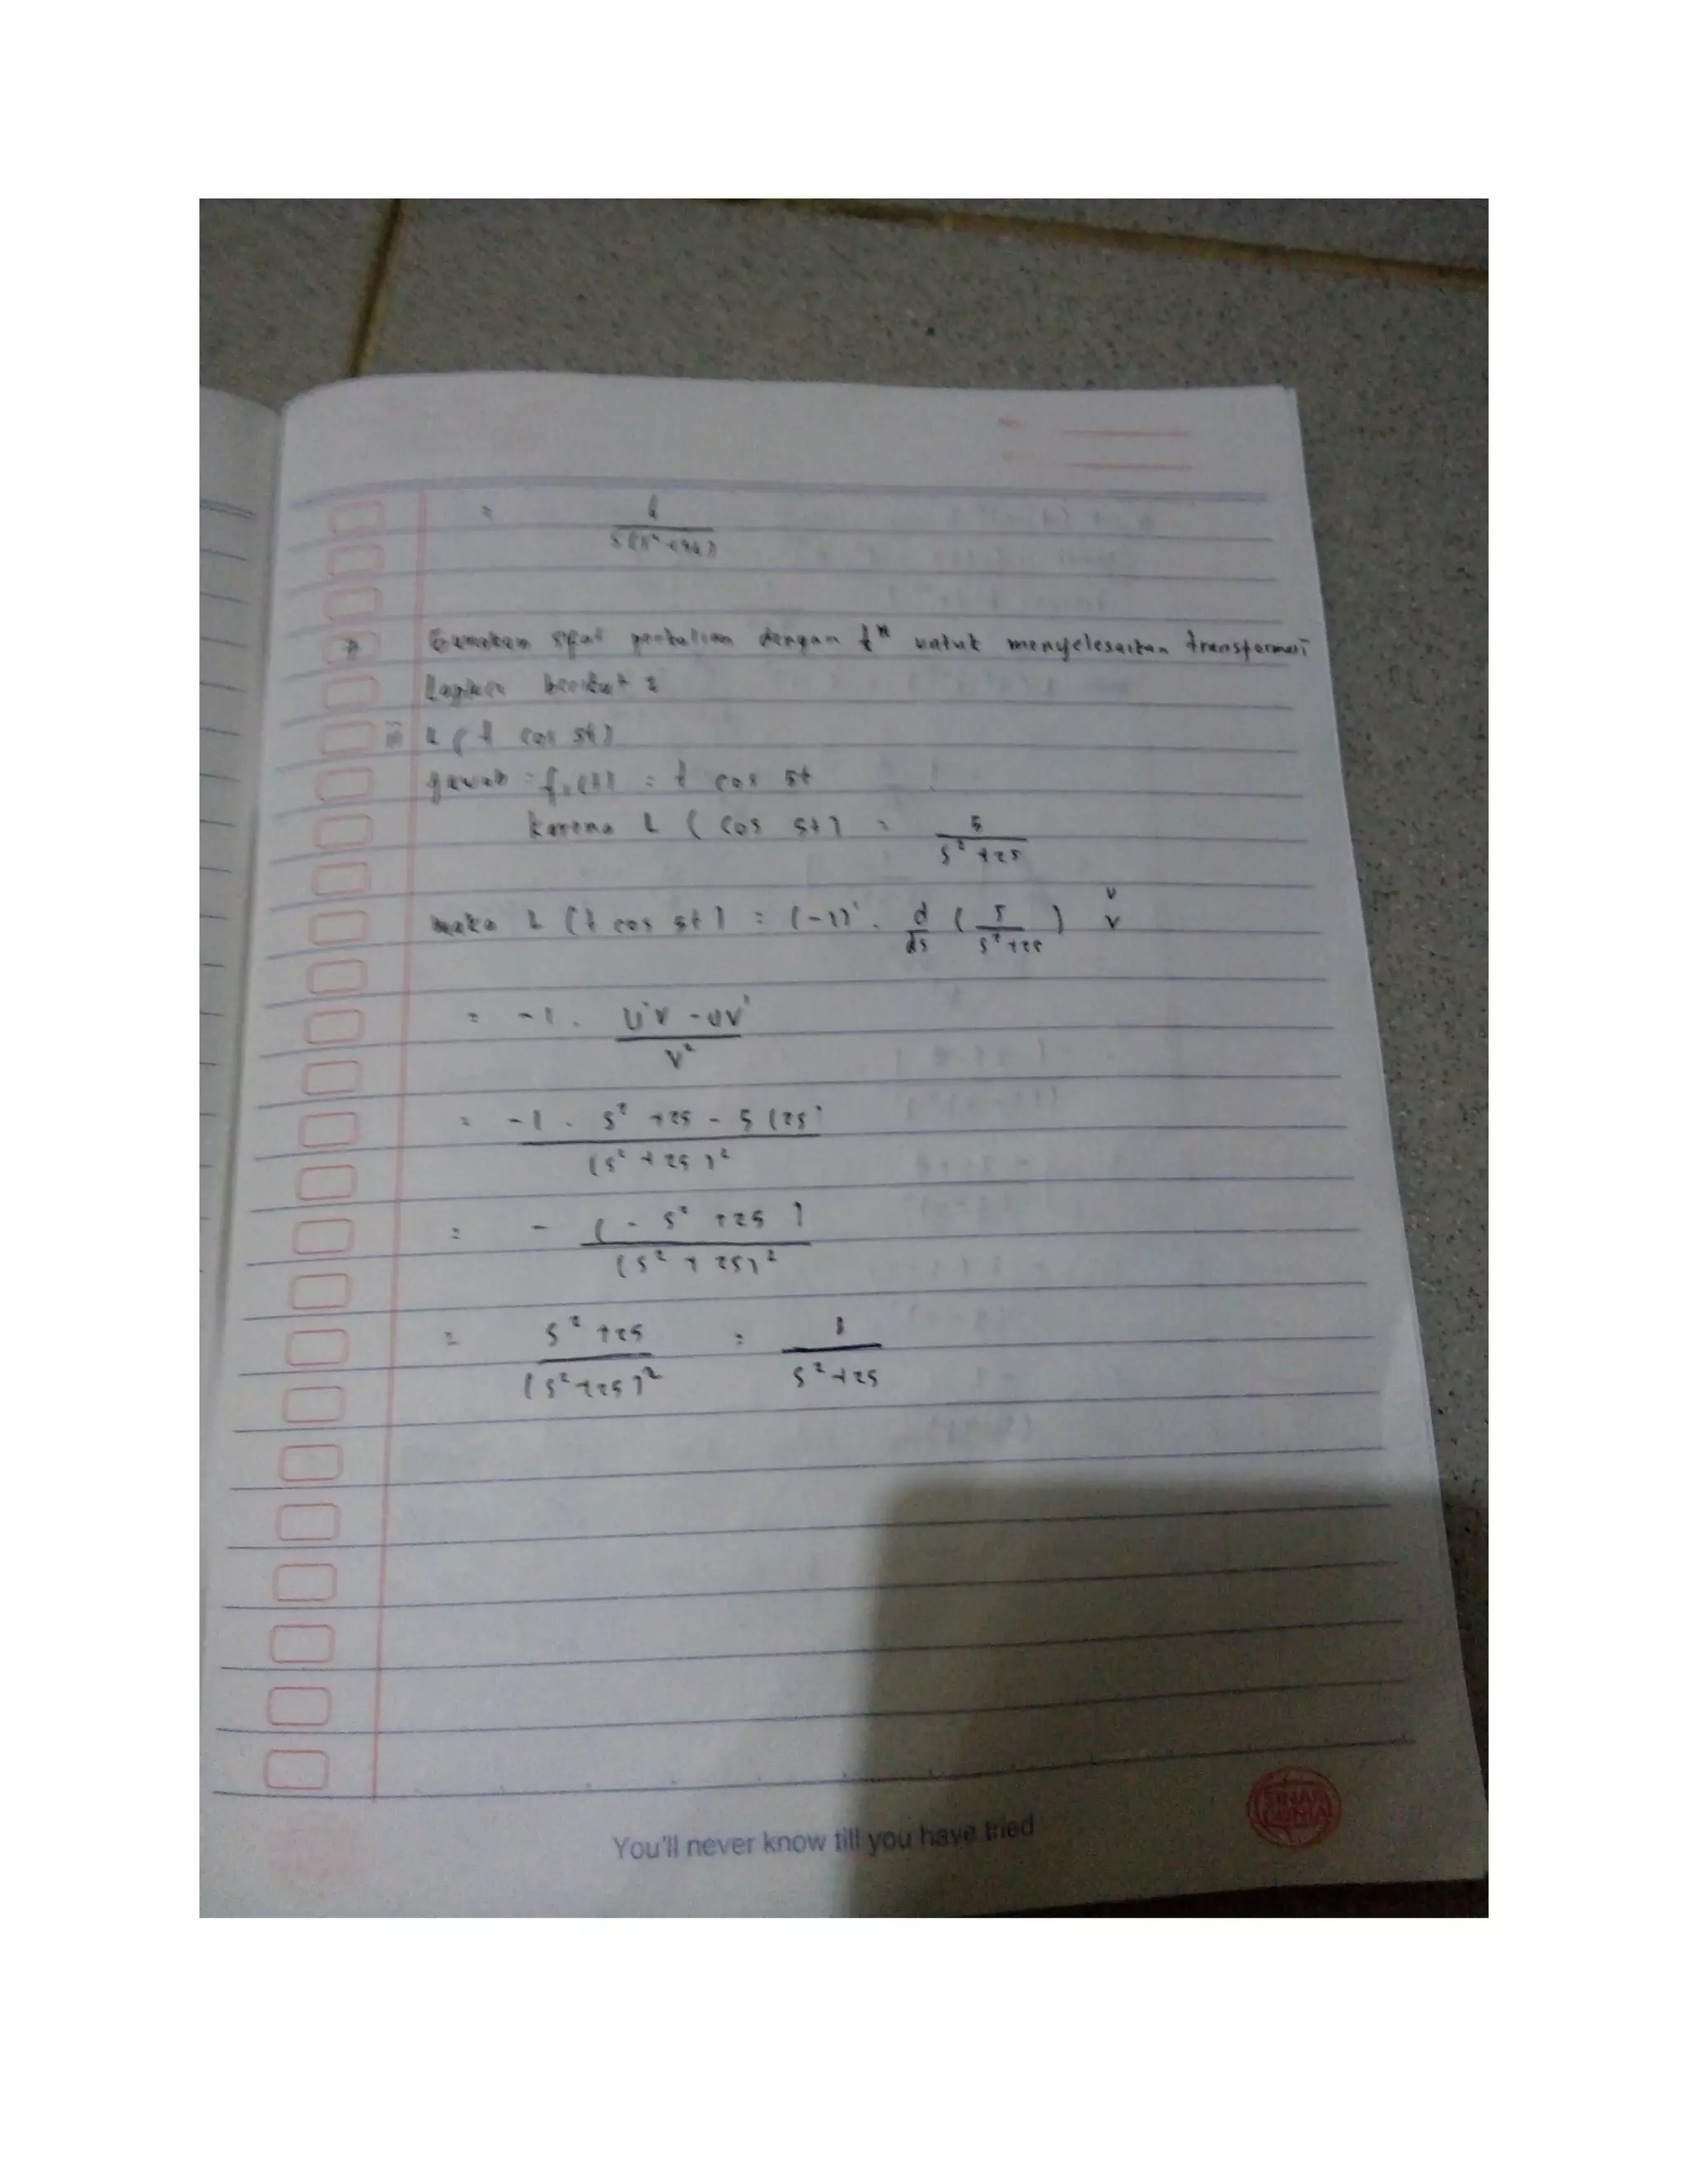 =
s(s² +
sifat perkalian dengan tⁿ untuk menyelesaikan transformasi
berikut :
L ( t cos 5t )
Jawab : f₁(t) = t cos 5t
karena L ( cos 5t ) = 5 / s² + 25
maka L ( t cos 5t ) = (-1)' . d/ds ( 5 / s² + 25 ) U V
= -1 . U'V - UV' / V²
= -1 . s² + 25 - 5 (2s) / (s² + 25 )²
= - ( - s² + 25 ) / (s² + 25)²
= s² + 25 / (s² + 25)² = 1 / s² + 25
You'll never know till you have tried
SINAR DUNIA